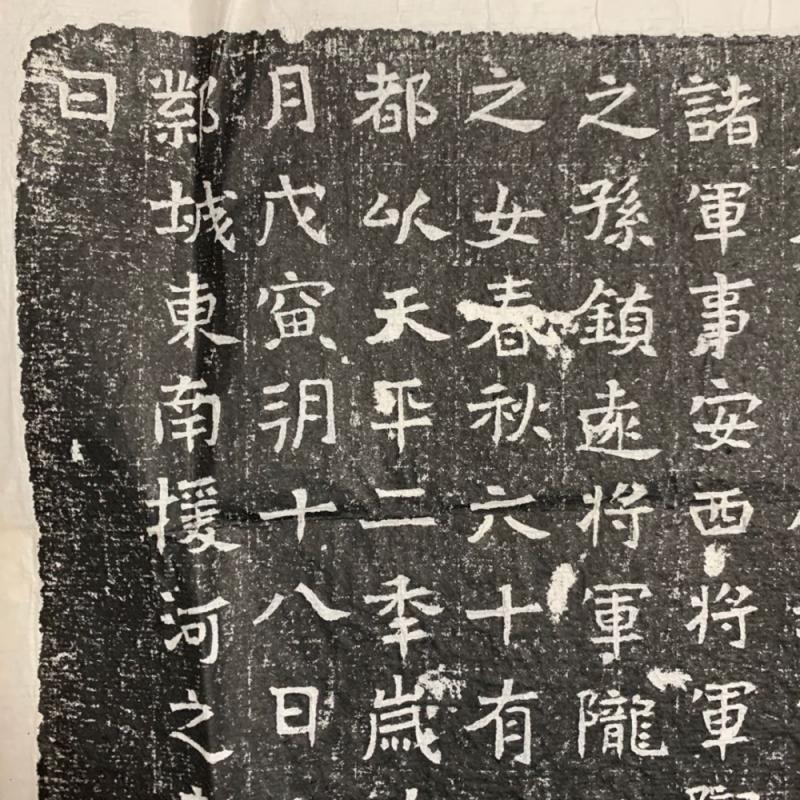 諸軍事安西将軍
之孫鎮遠将軍隴
之女春秋六十有
都以天平二年歲
月戊寅朔十八日
鄴城東南援河之
曰